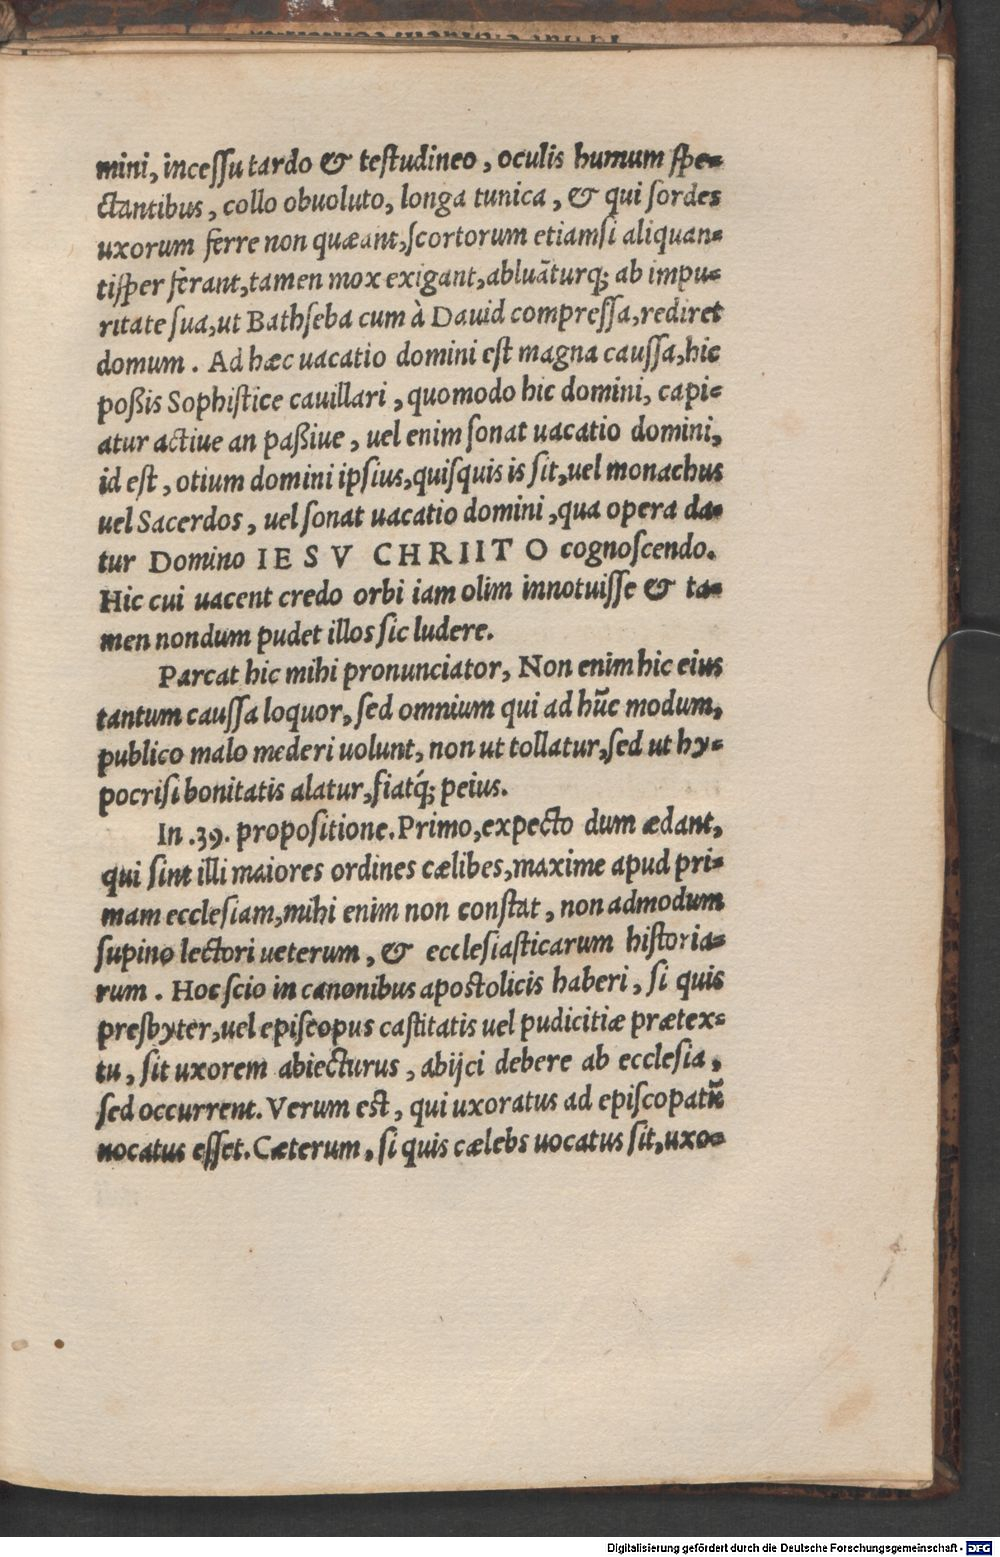 mini, incessu tardo & testudineo, oculis humum spe-
ctantibus, collo obuoluto, longa tunica, & qui sordes
uxorum ferre non quæant, scortorum etiamsi aliquan-
tisper ferant, tamen mox exigant, abluāturq; ab impu-
ritate sua, ut Bathseba cum à Dauid compressa, rediret
domum. Ad hæc uacatio domini est magna caussa, hic
poßis Sophistice cauillari, quomodo hic domini, capi-
atur actiue an paßiue, uel enim sonat uacatio domini,
id est, otium domini ipsius, quisquis is sit, uel monachus
uel Sacerdos, uel sonat uacatio domini, qua opera da-
tur Domino IESV CHRIITO cognoscendo.
Hic cui uacent credo orbi iam olim innotuisse & ta-
men nondum pudet illos sic ludere.
Parcat hic mihi pronunciator, Non enim hic eius
tantum caussa loquor, sed omnium qui ad hūc modum,
publico malo mederi uolunt, non ut tollatur, sed ut hy-
pocrisi bonitatis alatur, fiatq́; peius.
In .39. propositione. Primo, expecto dum ædant,
qui sint illi maiores ordines cælibes, maxime apud pri-
mam ecclesiam, mihi enim non constat, non admodum
supino lectori ueterum, & ecclesiasticarum historia-
rum. Hoc scio in canonibus apostolicis haberi, si quis
presbyter, uel episcopus castitatis uel pudicitiæ prætex-
tu, sit uxorem abiecturus, abijci debere ab ecclesia,
sed occurrent. Verum est, qui uxoratus ad episcopatū
uocatus esset. Cæterum, si quis cælebs uocatus sit, uxo-
Digitalisierung gefördert durch die Deutsche Forschungsgemeinschaft - DFG